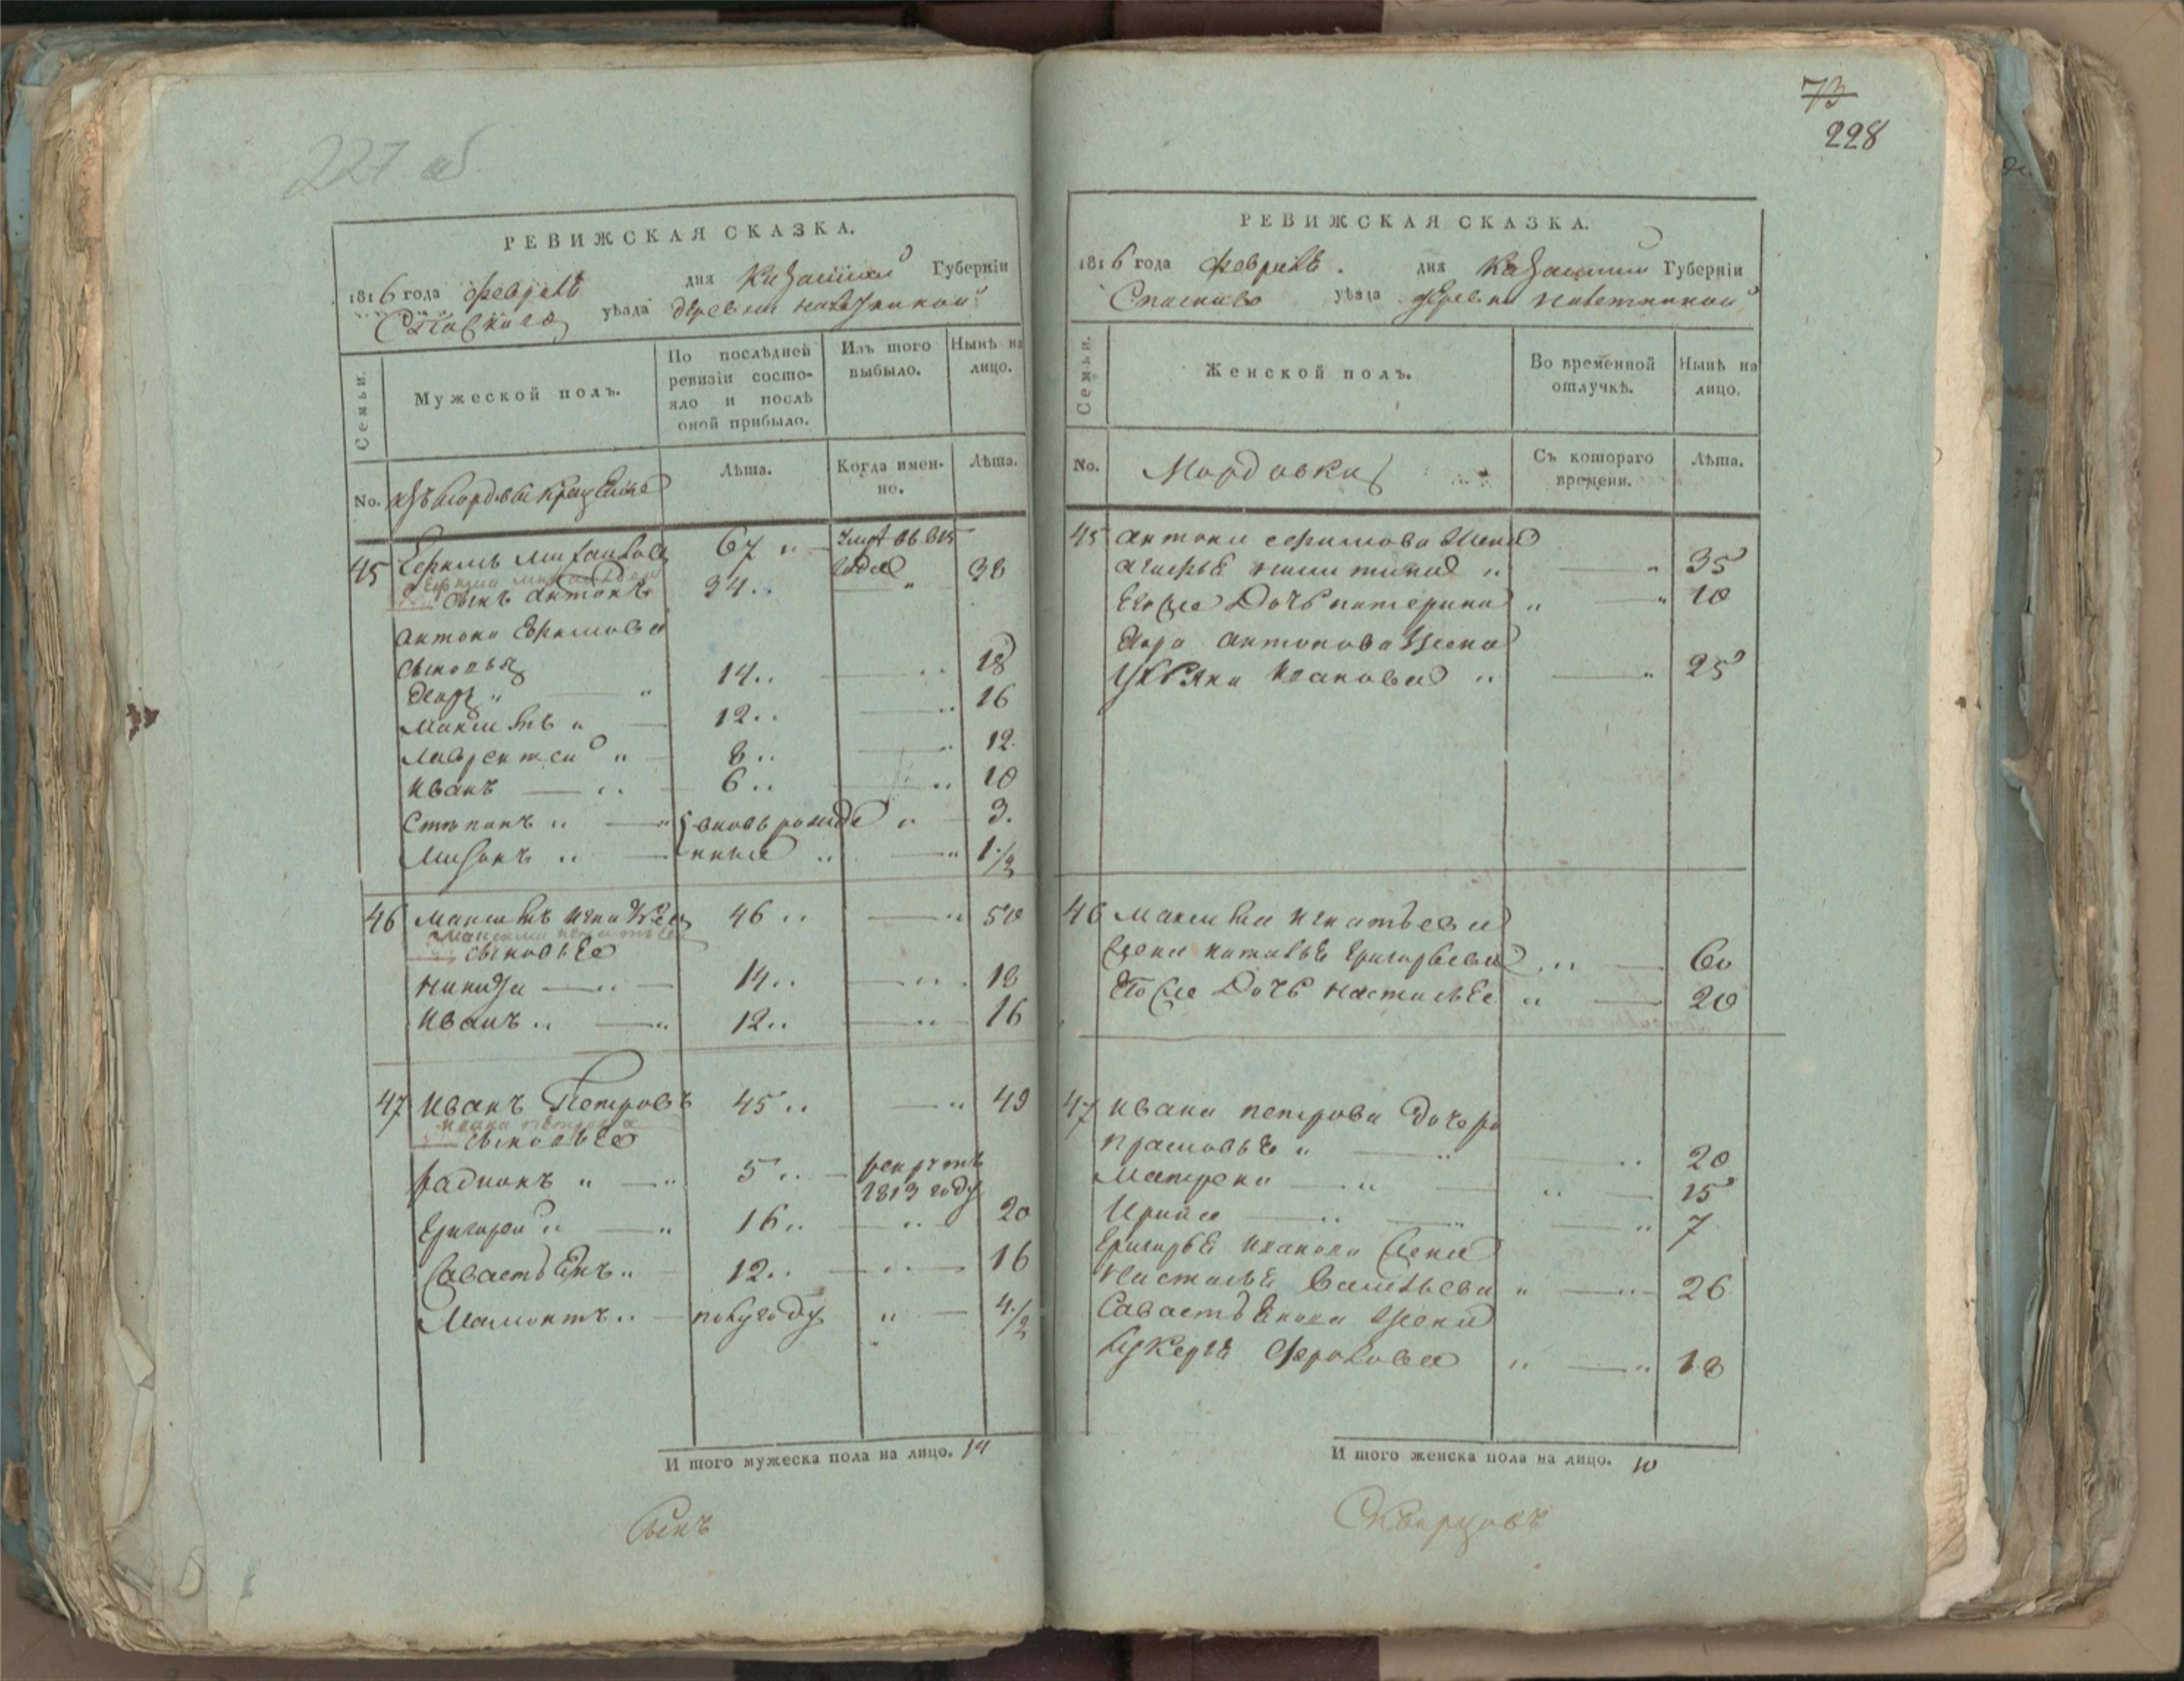 227 об
РЕВИЖСКАЯ СКАЗКА.
1816 года февраля дня Казанской Губерніи
Спаскаго уѣзда деревни
Семьи.
Мужеской полъ.
По послѣдней ревизіи состо-
яло и послѣ
оной прибыло.
Изъ того
выбыло.
Нынѣ на
лицо.
No.
изъ мордвы крещеные
Лѣта.
Когда имен-
но.
Лѣта.
45 Ефимъ Михайловъ 67 умре въ 815
годе
Ефима Михайлова
сынъ Антонъ 34 38
Антона Ефимова
сыновья
Егоръ 14 18
Максимъ 12 16
Лаврентей 8 12
Иванъ 6 10
Степанъ вновь рожде 3
нные 1 1/2
46 Максимъ Игнатьевъ 46 50
Максима Игнатьева
сыновье
Никита 14 18
Иванъ 12 16
47 Иванъ Петровъ 45 49
Ивана Петрова
сыновье
Радионъ 5 рекрутъ
1813 году
Григорей 16 20
Савастьянъ 12 16
Мамонтъ полугоду 4 1/2
И того мужеска пола на лицо. 14
Сынъ
73
228
РЕВИЖСКАЯ СКАЗКА.
1816 года февраля дня Казанской Губерніи
Спаскаго уѣзда деревни
Семьи.
Женской полъ.
Во временной
отлучкѣ.
Нынѣ на
лицо.
No.
Мордовки
Съ котораго
времени.
Лѣта.
45 Антона Ефимова жена
Агафья Никитина 35
Ево же дочь Катерина 10
Егора Антонова жена
Ульяна Иванова 25
46 Максима Игнатьева
жена Наталья Григорьева 60
Ево же дочь Настасья 20
47 Ивана Петрова дочери
Прасковья 20
Матрена 15
Ирина 7
Григорья Иванова жена
Настасья Васильева 26
Савастьянова жена
Лукерья Фролова 18
И того женска пола на лицо. 10
Скварцовъ